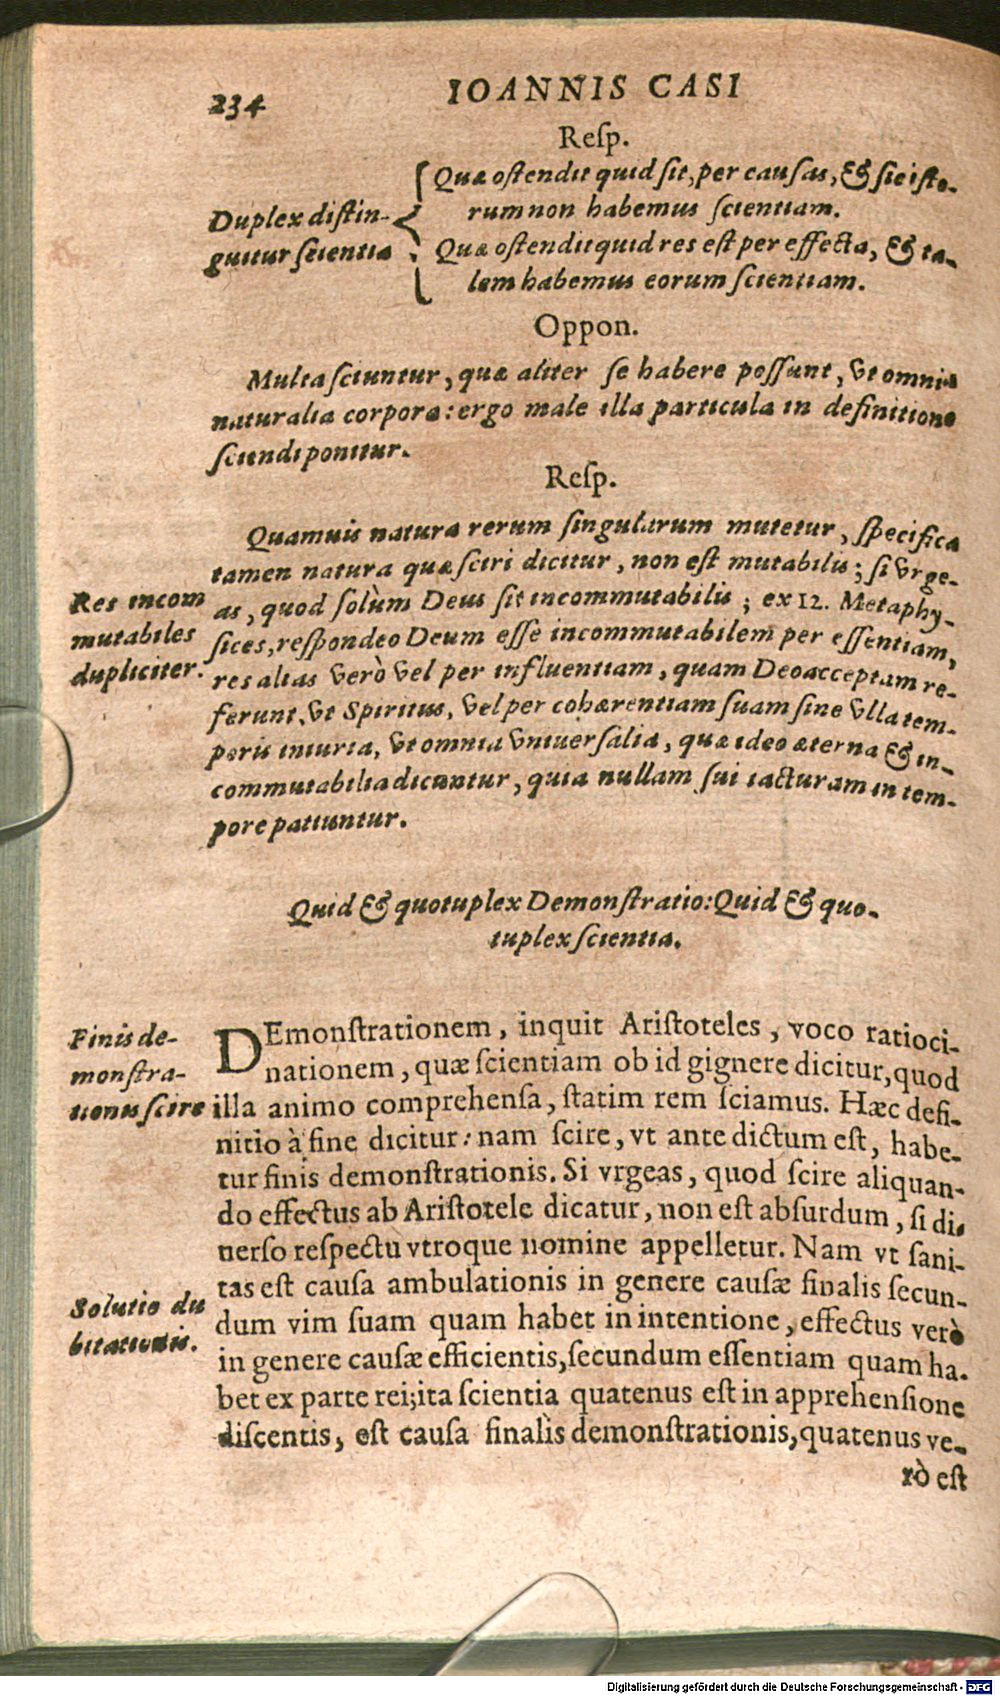 234 IOANNIS CASI
Resp.
Duplex distin-
guitur scientia
Quæ ostendit quid sit, per causas, & sic isto-
rum non habemus scientiam.
Quæ ostendit quid res est per effecta, & ta-
lem habemus eorum scientiam.
Oppon.
Multa sciuntur, quæ aliter se habere possunt, vt omnia
naturalia corpora: ergo male illa particula in definitione
sciendi ponitur.
Resp.
Quamuis natura rerum singularum mutetur, specifica
tamen natura quæ sciri dicitur, non est mutabilis; si vrge-
as, quod solùm Deus sit incommutabilis; ex 12. Metaphy-
sices, respondeo Deum esse incommutabilem per essentiam,
res alias verò vel per influentiam, quam Deo acceptam re-
ferunt, vt Spiritus, vel per cohærentiam suam sine vlla tem-
poris iniuria, vt omnia vniuersalia, quæ ideo æterna & in-
commutabilia dicuntur, quia nullam sui iacturam in tem-
pore patiuntur.
Res incom
mutabiles
dupliciter.
Quid & quotuplex Demonstratio: Quid & quo-
tuplex scientia.
DEmonstrationem, inquit Aristoteles, voco ratioci-
nationem, quæ scientiam ob id gignere dicitur, quod
illa animo comprehensa, statim rem sciamus. Hæc defi-
nitio à fine dicitur: nam scire, vt ante dictum est, habe-
tur finis demonstrationis. Si vrgeas, quod scire aliquan-
do effectus ab Aristotele dicatur, non est absurdum, si di-
uerso respectu vtroque nomine appelletur. Nam vt sani-
tas est causa ambulationis in genere causæ finalis secun-
dum vim suam quam habet in intentione, effectus verò
in genere causæ efficientis, secundum essentiam quam ha-
bet ex parte rei; ita scientia quatenus est in apprehensione
discentis, est causa finalis demonstrationis, quatenus ve-
rò est
Finis de-
monstra-
tionis scire
Solutio du
bitationis.
Digitalisierung gefördert durch die Deutsche Forschungsgemeinschaft - DFG